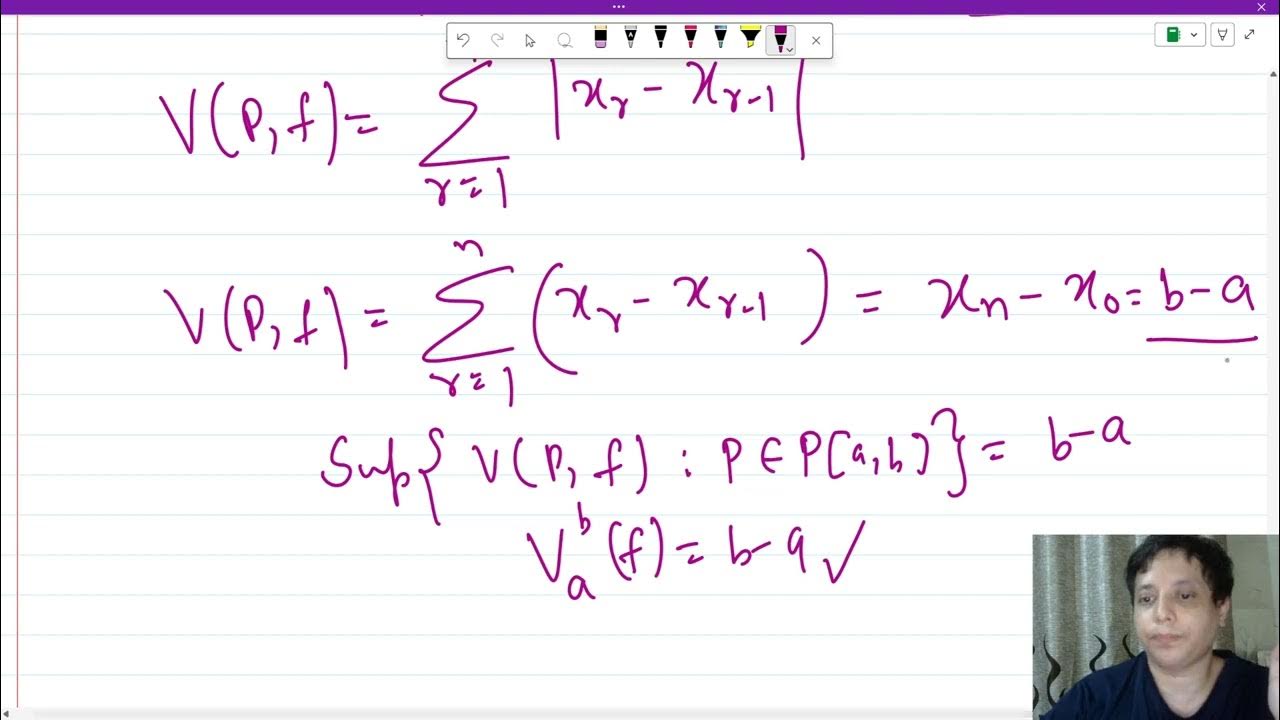 V(P, f) = ∑_{r=1} |x_r - x_{r-1}|
V(P, f) = ∑_{r=1}^{n} (x_r - x_{r-1}) = x_n - x_0 = b - a
Sup{ V(P, f) : P ∈ P[a, b] } = b - a
V_a^b (f) = b - a ✓